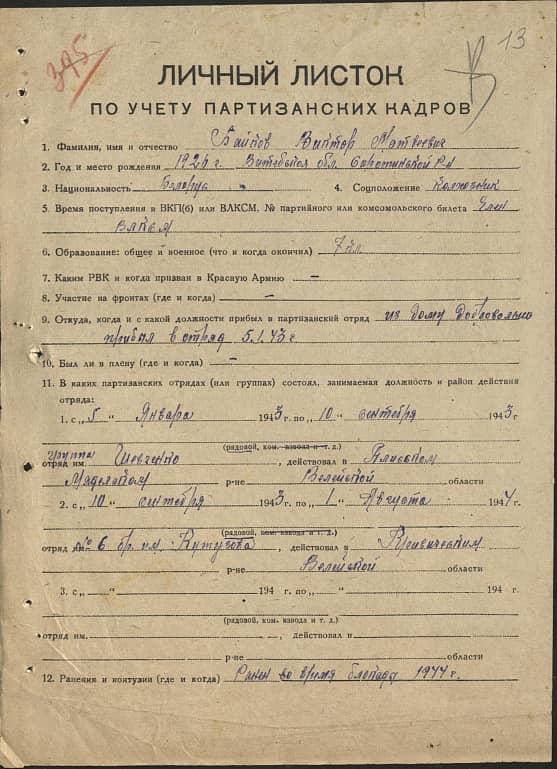 395
13
ЛИЧНЫЙ ЛИСТОК
ПО УЧЕТУ ПАРТИЗАНСКИХ КАДРОВ
1. Фамилия, имя и отчество Байков Виктор Матвеевич
2. Год и место рождения 1926 г. Витебская обл. Сиротинский р-н
3. Национальность Белорус 4. Соцположение колхозник
5. Время поступления в ВКП(б) или ВЛКСМ, № партийного или комсомольского билета Член
ВЛКСМ
6. Образование: общее и военное (что и когда окончил) 7 кл.
7. Каким РВК и когда призван в Красную Армию –
8. Участие на фронтах (где и когда) –
9. Откуда, когда и с какой должности прибыл в партизанский отряд из дому добровольно
прибыл в отряд 5.1.43 г.
10. Был ли в плену (где и когда) –
11. В каких партизанских отрядах (или группах) состоял, занимаемая должность и район действия
отряда:
1. с „ 5 " Января 1943 г. по „ 10 " сентября 1943 г.
(рядовой, ком. взвода и т. д.)
группа
отряд им. Шевченко, действовал в Плисском
Мядельском р-не Вилейской области
2. с „ 10 " сентября 1943 г. по „ 1 " Августа 1944 г.
(рядовой, ком. взвода и т. д.)
отряд № 6 бр. им. Кутузова, действовал в Кривичским
р-не Вилейской области
3. с „ " 194 г. по „ " 194 г.
(рядовой, ком. взвода и т. д.)
отряд им. , действовал в
р-не области
12. Ранения и контузии (где и когда) Ранен во время блокады 1944 г.